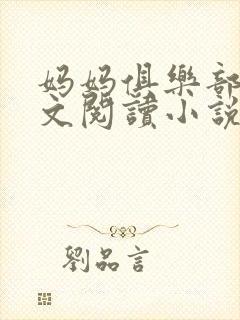 妈妈俱樂部
文閱讀小說
劉品言